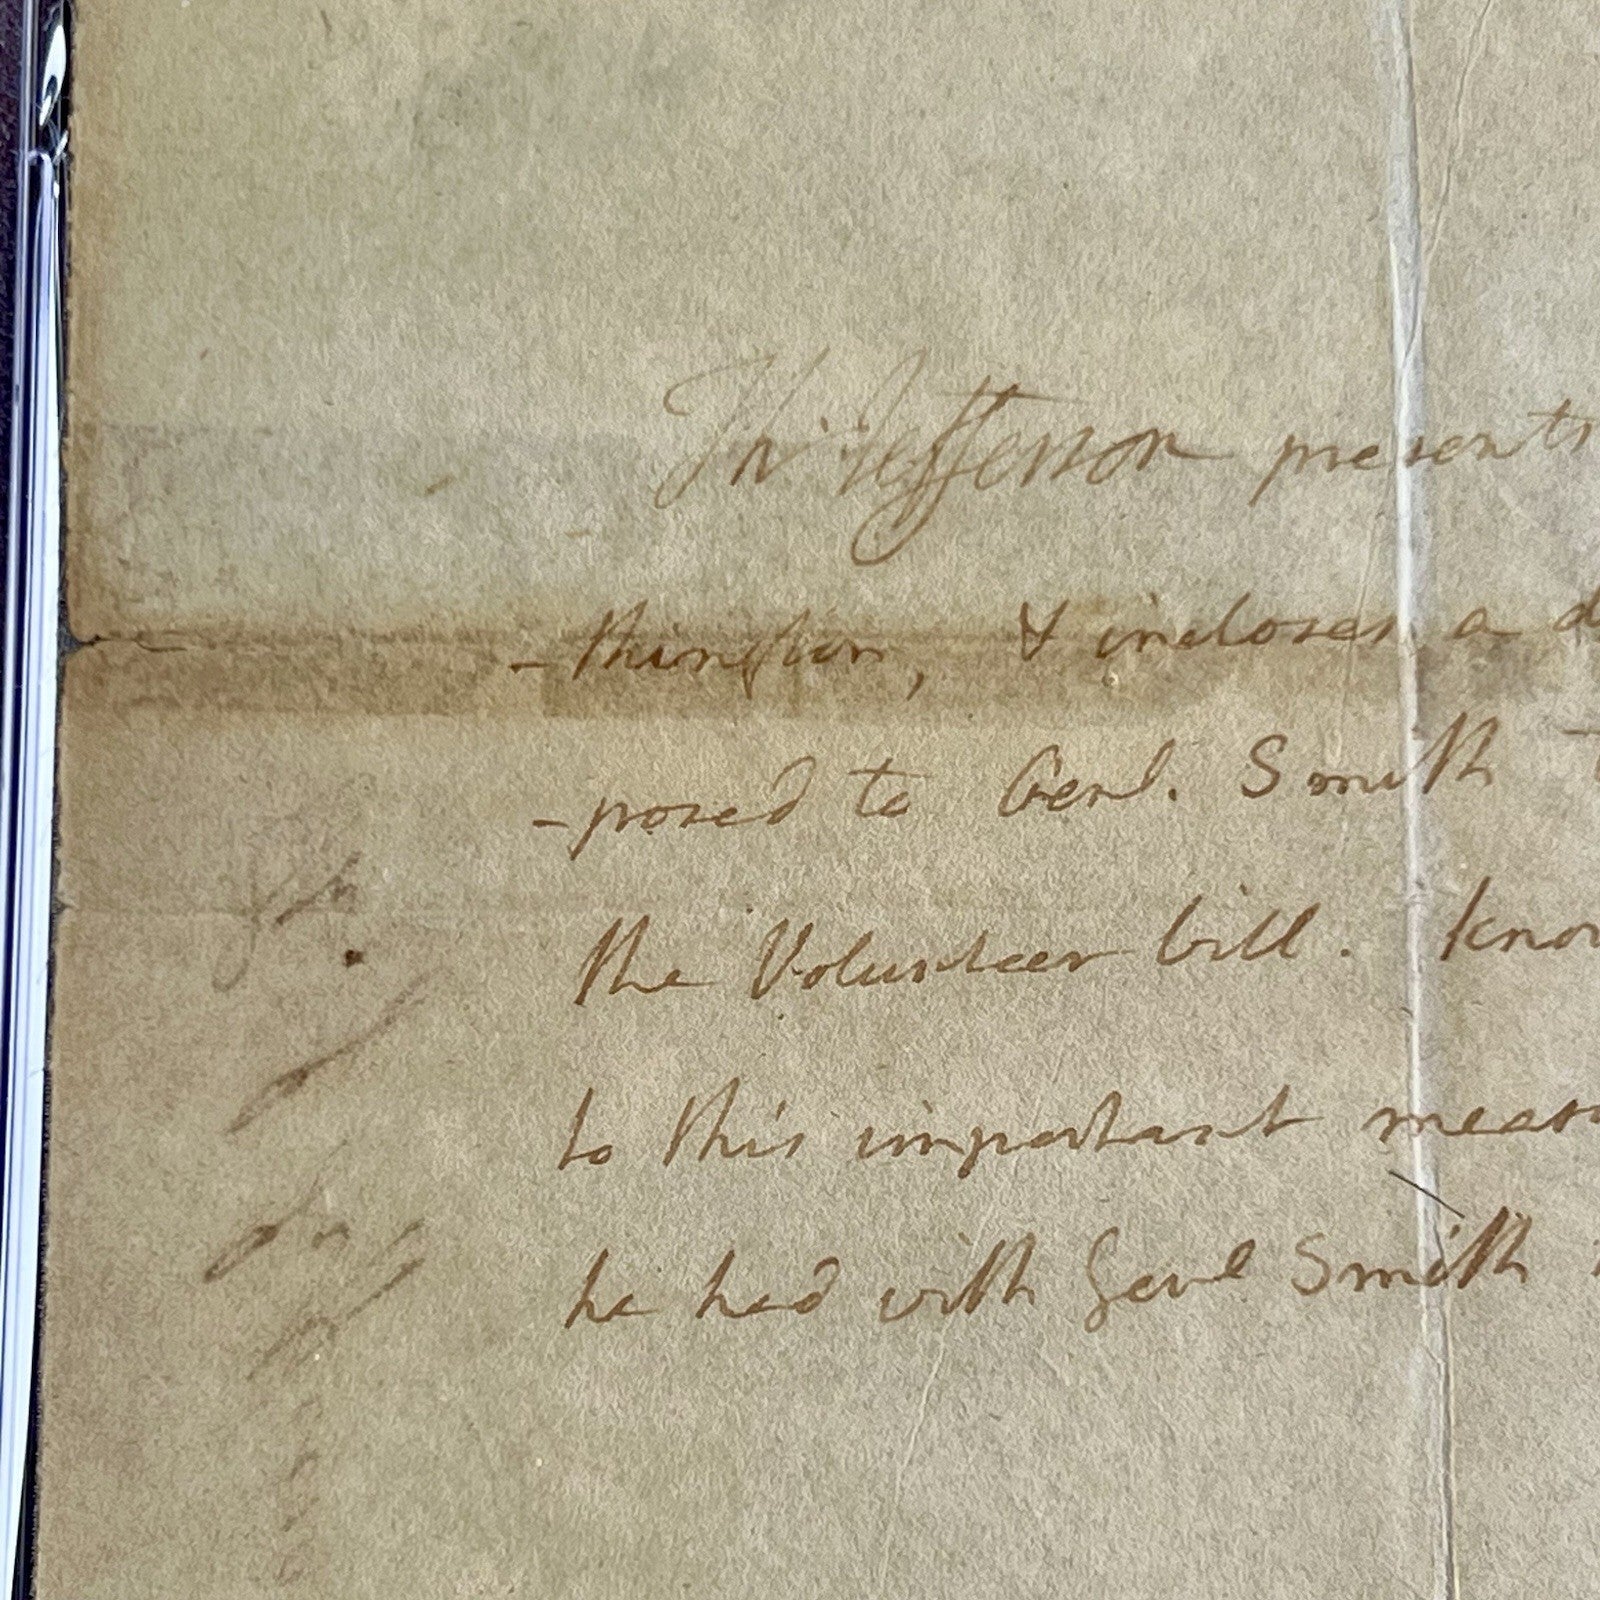 Th: Jefferson presents
-thington, & incloses a d
-posed to Genl. Smith
the Volunteer bill. know
to this important meas
he had with Genl Smith